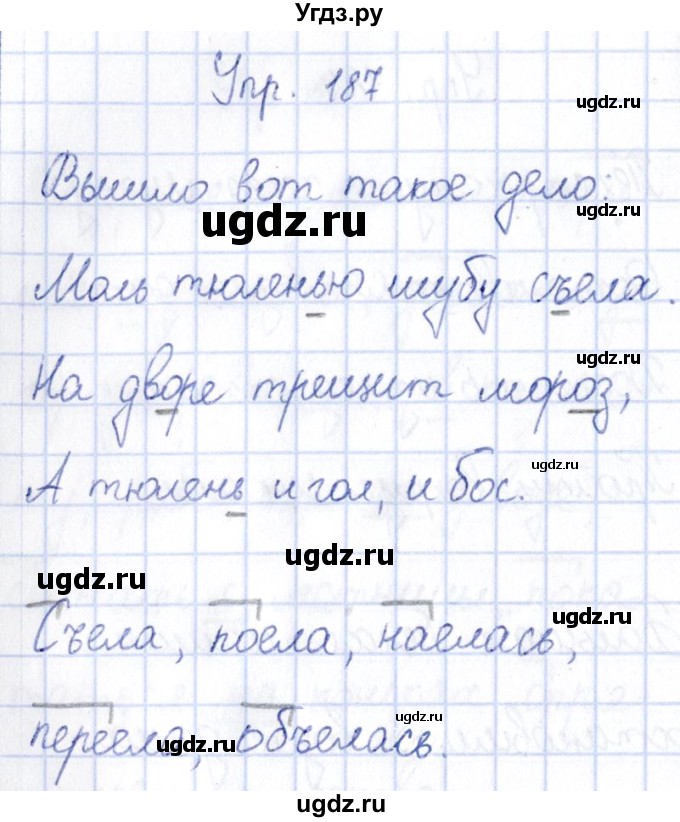 Угдз.ру
Упр. 187
ugdz.ru
Вышло вот такое дело:
ugdz.ru
ugdz.ru
Моль тюленью шубу съела.
ugdz.ru
На дворе трещит мороз,
ugdz.ru
А тюлень и гол, и бос.
ugdz.ru
ugdz.ru
ugdz.ru
Съела, поела, наелась,
ugdz.ru
переела, объелась.
ugdz.ru
ugdz.ru
ugdz.ru